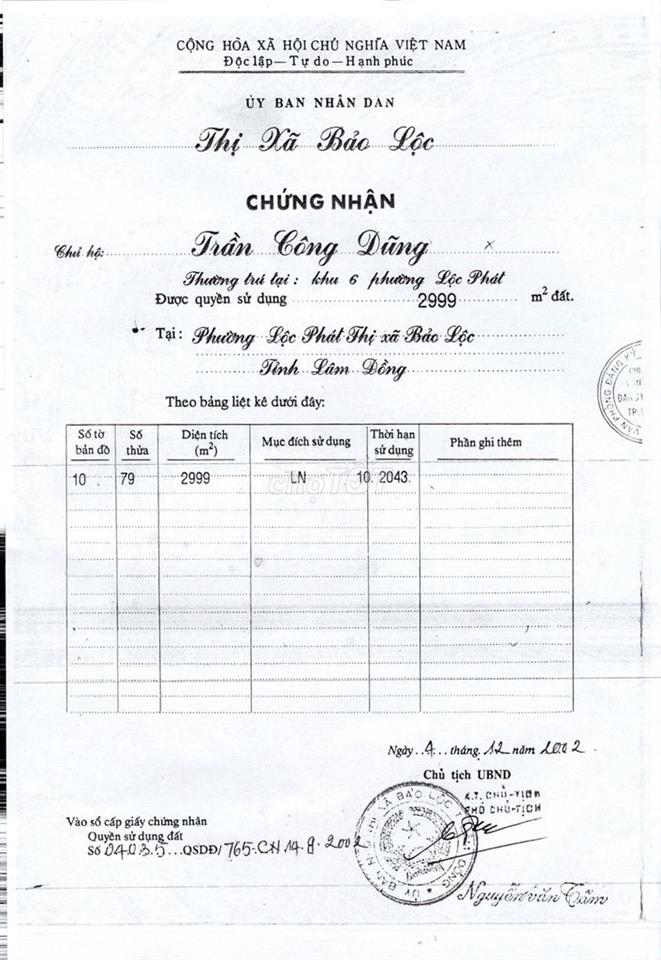 CỘNG HÒA XÃ HỘI CHỦ NGHĨA VIỆT NAM
Độc lập - Tự do - Hạnh phúc
ỦY BAN NHÂN DÂN
Thị Xã Bảo Lộc
CHỨNG NHẬN
Chủ hộ: Trần Công Dũng
Thường trú tại : khu 6 phường Lộc Phát
Được quyền sử dụng 2999 m² đất.
Tại : Phường Lộc Phát Thị xã Bảo Lộc
Tỉnh Lâm Đồng
Theo bảng liệt kê dưới đây:
Số tờ bản đồ Số thửa Diện tích (m²) Mục đích sử dụng Thời hạn sử dụng Phần ghi thêm
10 79 2999 LN 10. 2043.
chợTỐT
Ngày 4 tháng 12 năm 2002
Chủ tịch UBND
K.T. CHỦ-TỊCH
PHÓ CHỦ-TỊCH
Vào sổ cấp giấy chứng nhận
Quyền sử dụng đất
Số 04035 QSDĐ/ 765.CN 14.8.2002
Nguyễn Văn Tấm
VĂN PHÒNG ĐĂNG KÝ